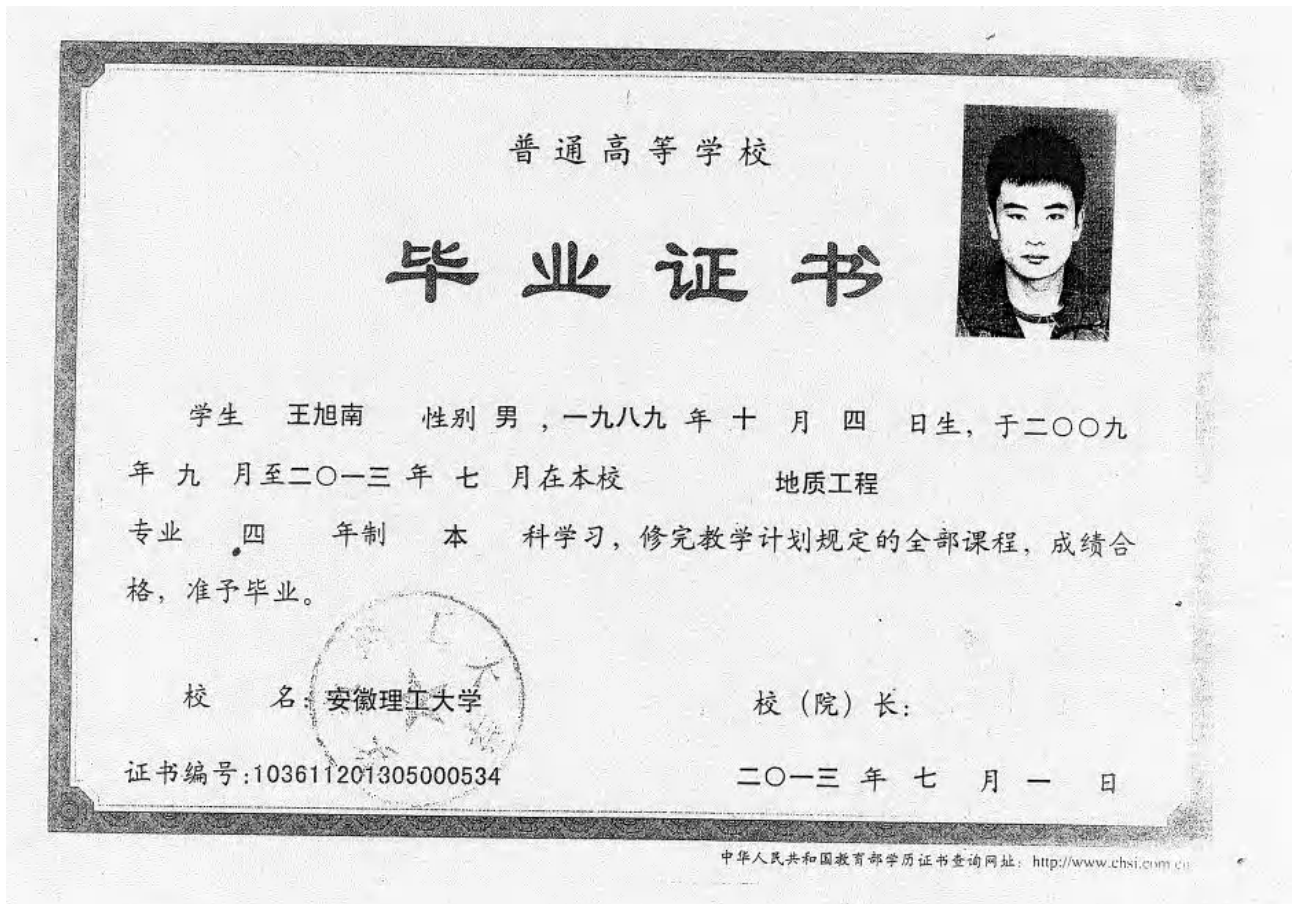 普通高等学校
毕业证书
学生 王旭南 性别 男 ,一九八九 年 十 月 四 日生, 于二〇〇九
年 九 月至二〇一三 年 七 月在本校 地质工程
专业 四 年制 本 科学习, 修完教学计划规定的全部课程, 成绩合
格, 准予毕业。
校 名: 安徽理工大学
校(院)长:
证书编号:103611201305000534
二〇一三 年 七 月 一 日
中华人民共和国教育部学历证书查询网址: http://www.chsi.com.cn